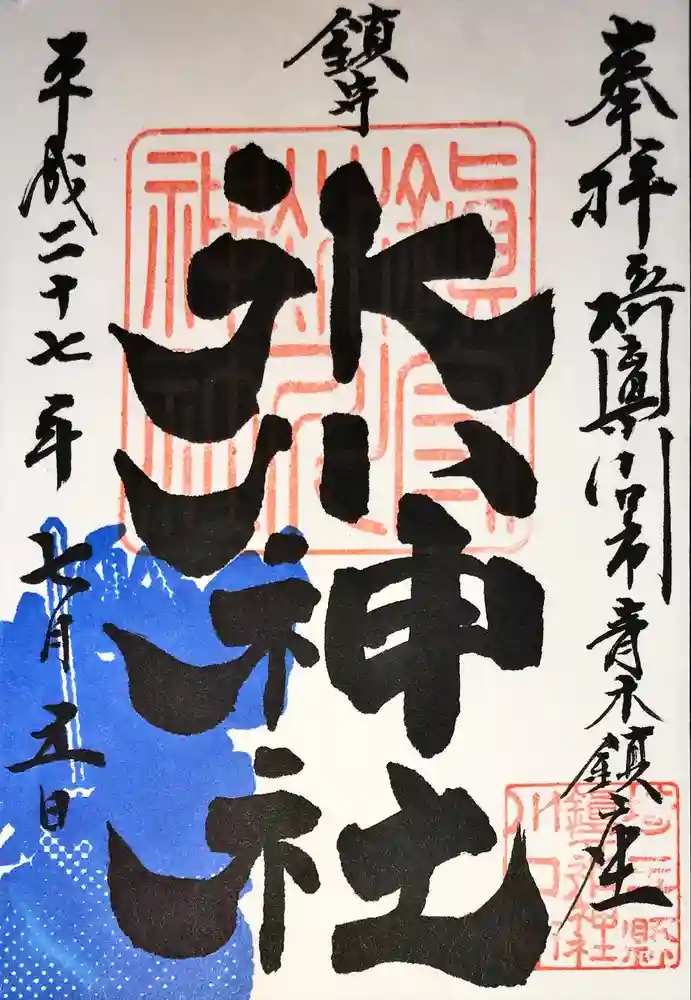 奉拝 埼玉県川口市青木鎮座
鎮守
氷川神社
平成二十七年七月五日